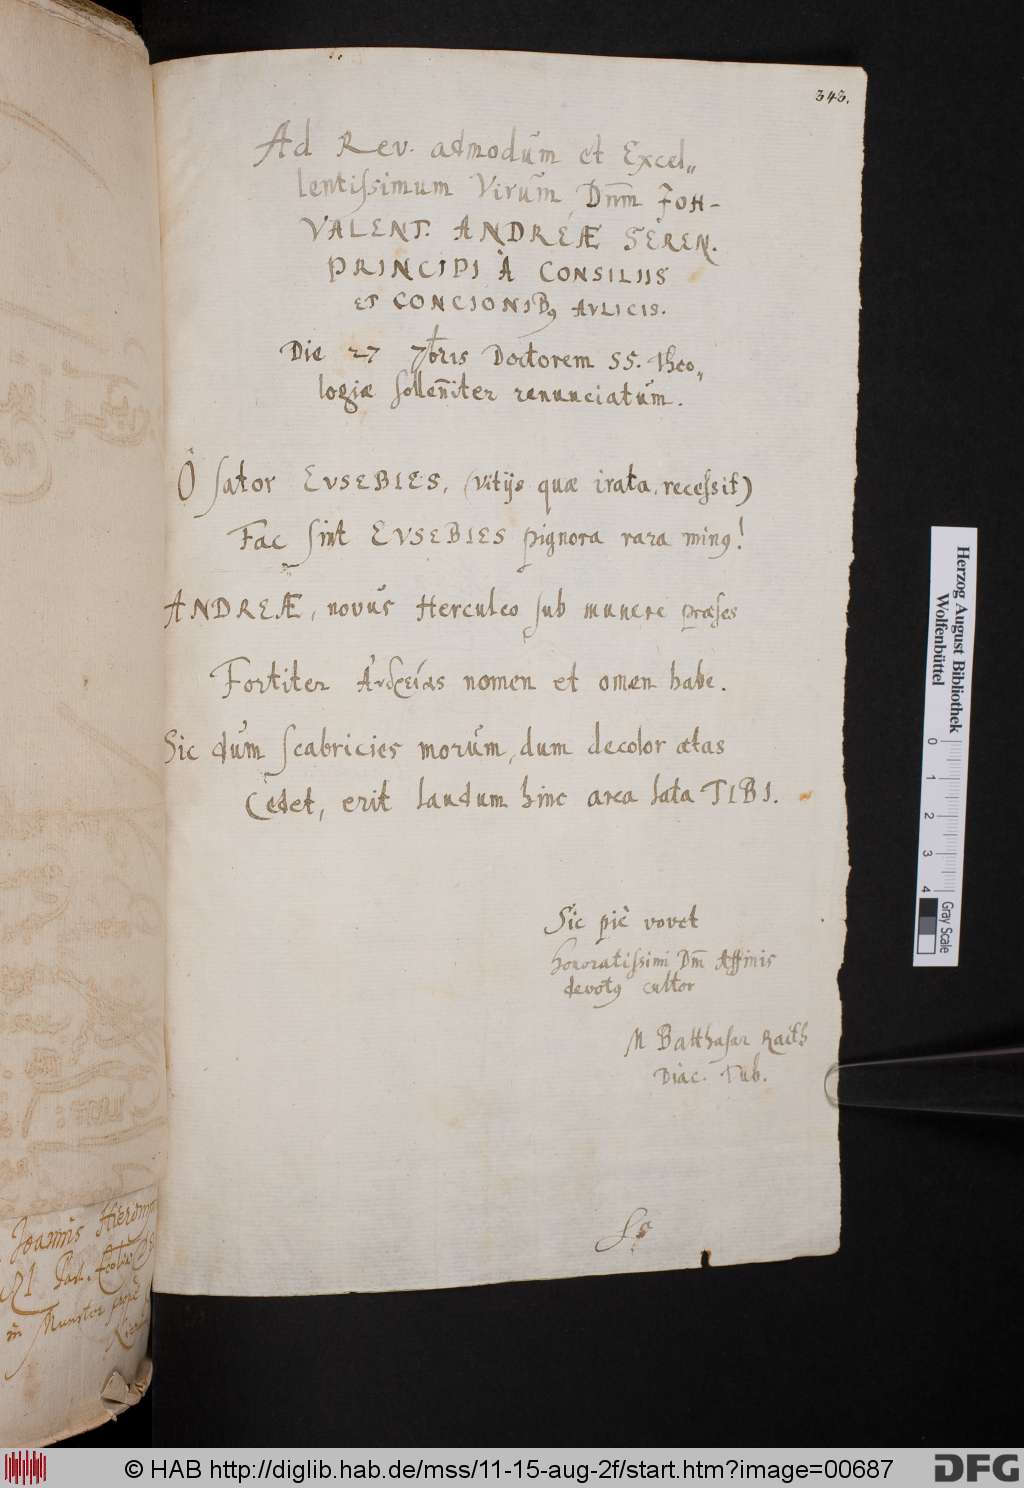 343.
Ad Rev. admodum et Excel„
lentissimum Virum, Dnm JOH-
VALENT. ANDREÆ SEREN.
PRINCIPI À CONSILIIS
ET CONCIONIBꝰ AVLICIS.
Die 27 7bris Doctorem SS. Theo„
logiæ solleñiter renunciatum.
Ô sator EVSEBIES, (vitijs quæ irata, recessit)
Fac sint EVSEBIES pignora rara minꝰ!
ANDREÆ, novus Herculeo sub munere præses
Fortiter Ἀνδρείας nomen et omen habe.
Sic dum scabricies morum, dum decolor ætas
Cedet, erit laudum hinc area lata TIBI.
Sic piè vovet
honoratissimi Dm̄ Affinis
devotꝰ cultor
M Balthasar Raith
Diac. Tub.
Joannis Hieronym
in Munster prope
Herzog August Bibliothek
Wolfenbüttel
0 1 2 3 4
Gray Scale
© HAB http://diglib.hab.de/mss/11-15-aug-2f/start.htm?image=00687
DFG